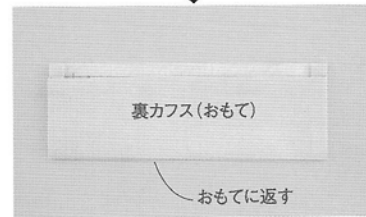 裏カフス(おもて)
おもてに返す